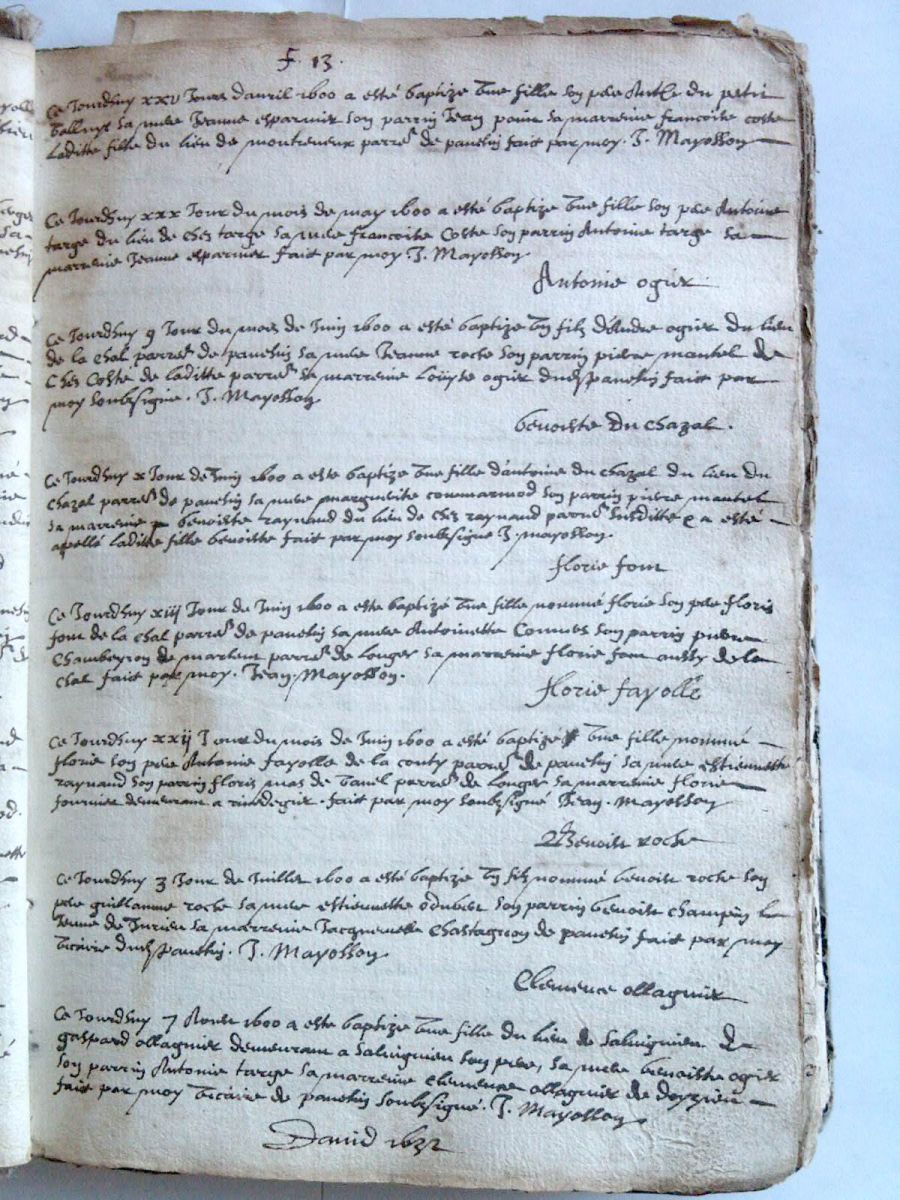 F. 13.
Ce Jourdhuy xxv Jour davril 1600 a esté baptize une fille son pere Anth. du petit
balluyt sa mere Jeanne esparmier son parrin Jean pom sa marreine francoise coste
laditte fille du lieu de monteremeux parr. de pavesin fait par moy. J. Mayosson
Ce Jourdhuy xxx Jour du mois de may 1600 a esté baptize une fille son pere Antoine
targe du lieu de ches targe sa mere francoise Coste son parrin Antoine targe sa
marreine Jeanne esparmier fait par moy J. Mayosson
Antonie ogier
Ce Jourdhuy 9 Jour du mois de Juin 1600 a esté baptize un filz d'Andre ogier du lieu
de la chal parr. de pavesin sa mere Jeanne roche son parrin pierre mantel de
Ches Coste de laditte parr. sa marreine Loüyse ogier dud. pavesin fait par
moy soubsigne. J. Mayosson
benoiste du chazal.
Ce Jourdhuy x Jour de Juin 1600 a este baptize une fille d'antoine du chazal du lieu du
chazal parr. de pavesin sa mere marguerite commarmod son parrin pierre mantel
sa marreine benoiste raynaud du lieu de ches raynaud parr. susditte & a esté
apellé laditte fille benoiste fait par moy soubsigne J. mayosson.
florie fom
Ce Jourdhuy xiij Jour de Juin 1600 a este baptizé une fille nommé florie son pere floris
fom de la chal parr. de pavesin sa mere Antoinette son parrin pierre
Chambeyron de marlent parr. de Longes sa marreine florie fom aussy de la
chal fait par moy. Jean. Mayosson.
florie fayolle
Ce Jourdhuy xxij Jour du mois de Juin 1600 a esté baptizé une fille nommé
florie son pere Antonie fayolle de la conty parr. de pavesin sa mere estiennette
raynaud son parrin floris mas de tanel parr. de Longes sa marreine florie
fournier demeurant a fait par moy soubsigné Jean. Mayosson
Benoist roche
Ce Jourdhuy 3 Jour de Juillet 1600 a esté baptize un filz nommé benoist roche son
pere guillaume roche sa mere estiennette odubert son parrin benoist champin le
Jeune de Jurieu sa marreine Jacquemette Chastagnon de pavesin fait par moy
vicaire dud. pavesin. J. Mayosson
Clemence ollagnier
Ce Jourdhuy 7 Aoust 1600 a este baptize une fille du lieu de salvignieu de
gaspard ollagnier demeurant a salvignieu son pere, sa mere benoiste ogier
son parrin Antonie targe sa marreine Clemence ollagnier de doyzieu
fait par moy vicaire de pavesin soubsigné. J. Mayosson
David 1632